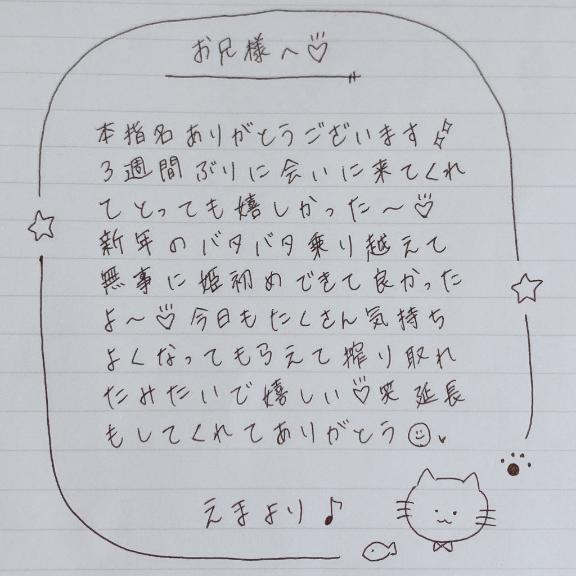 お兄様へ♡
本指名ありがとうございます
3週間ぶりに会いに来てくれ
てとっても嬉しかった〜♡
新年のバタバタ乗り越えて
無事に姫初めできて良かった
よ〜♡今日もたくさん気持ち
よくなってもらえて搾り取れ
たみたいで嬉しい♡笑 延長
もしてくれてありがとう☺
えまより♪